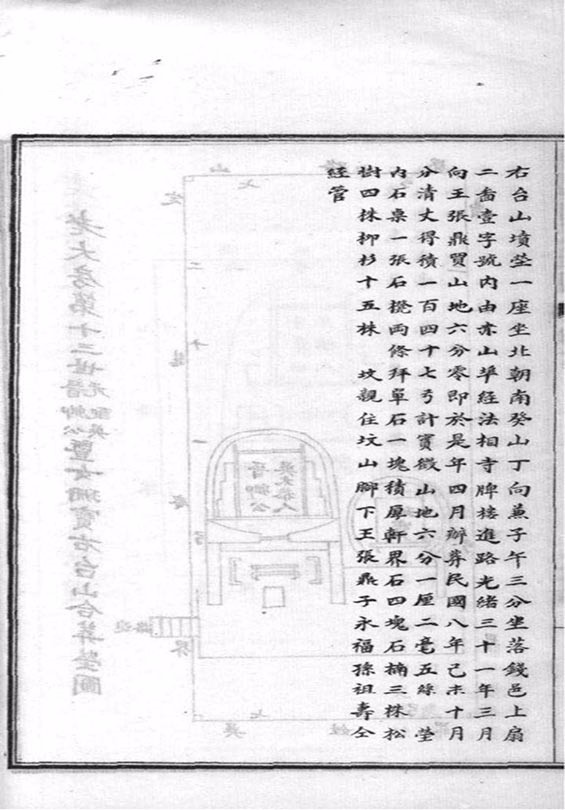 右台山墳塋一座坐北朝南癸山丁向兼子午三分坐落錢邑上扇
二畨壹字號内由赤山埠經法相寺牌樓進路光緒三十一年三月
向王張鼎買山地六分零即於是年四月辦葬民國八年己未十月
分清丈得積一百四十七弓計實徵山地六分一厘二毫五絲 塋
内石桌一張石櫈兩條拜單石一塊積厚軒界石四塊石楠三株松
樹四株柳杉十五株 墳親住墳山脚下王張鼎子永福孫祖壽仝
經管